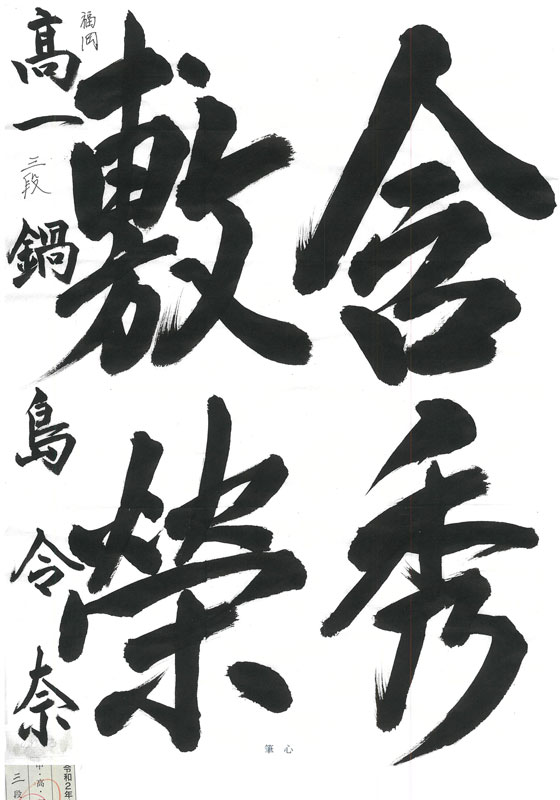 含秀
敷榮
福岡
高一 三段 鍋島令奈
筆心
令和2年
中・高・
三段